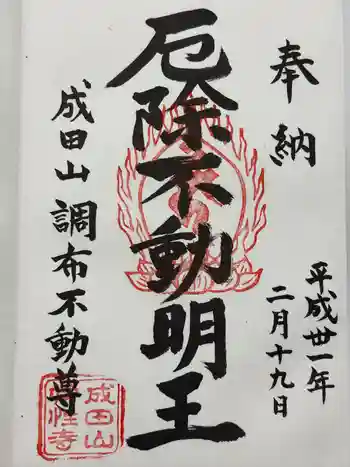 奉納
平成卅一年
二月十九日
厄除不動明王
成田山調布不動尊
成田山
性寺